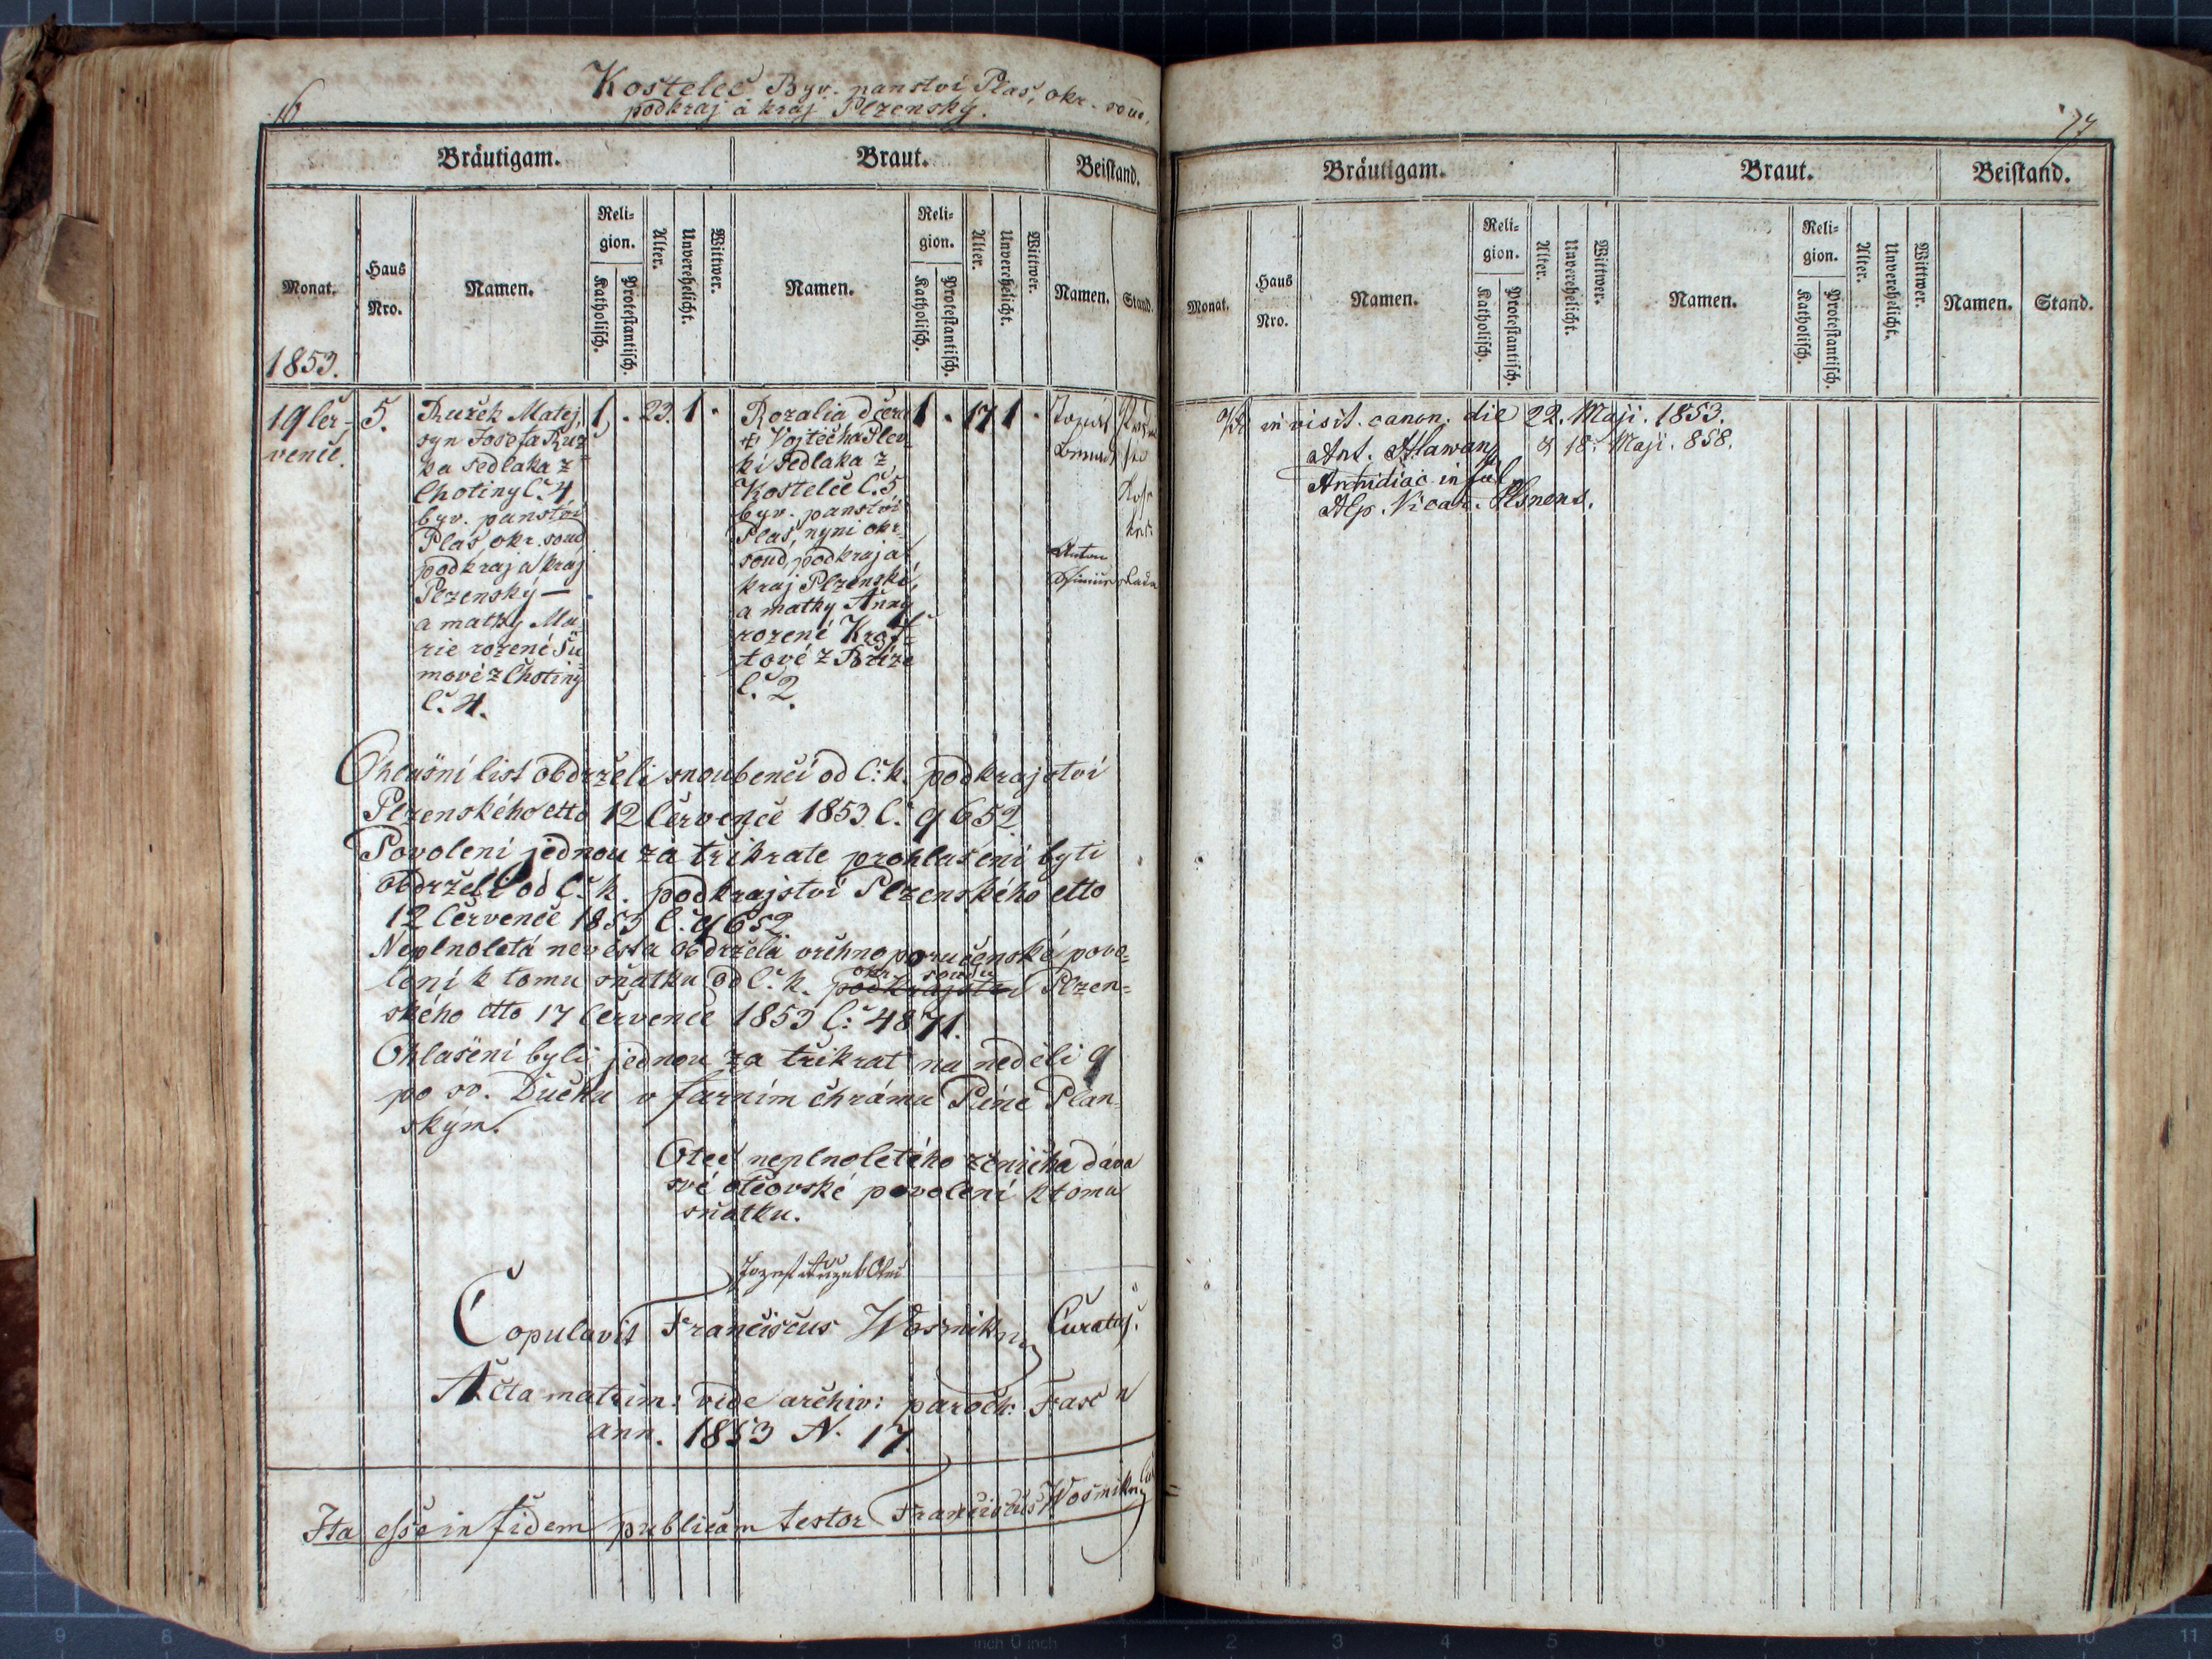 76
Kostelec Byv. panství Plas, okr. soud,
podkraj a kraj Plzenský.
Bräutigam.
Braut.
Beistand.
Monat.
Haus Nro.
Namen.
Religion.
Katholisch.
Protestantisch.
Alter.
Unverehelicht.
Wittwer.
Namen.
Religion.
Katholisch.
Protestantisch.
Alter.
Unverehelicht.
Wittwer.
Namen.
Stand.
1853.
19 čer-
vence.
5.
Ružek Matej,
syn Josefa Ruž=
ka sedlaka z
Chotiny č. 4
byv. panství
Plas, okr. soud
podkraj a kraj
Plzenský —
a matky Ma-
rie rozené Šu=
mové z Chotiny
č. 4.
1 . 23. 1 .
Rozalia dcera
Vojtěcha Plev-
ki sedlaka z
Kostelce č. 5
byv. panství
Plas, nyni okr.
soud, podkraj a
kraj Plzenské,
a matky Anny
rozené Kraf=
tové z Bříze
č. 2.
1 . 17 1 .
Anton
Ohlašní list obdrželi snoubenci od c. k. podkrajství
Plzenského dtto 12 Července 1853 č. 9652.
Povolení jednou za třikrate prohlašeni byti
obdrželi od c. k. podkrajství Plzenského dtto
12 Července 1853 č. 9652.
Neplnoletá nevěsta obdržela vrchnoporučenské povo=
lení k tomu sňatku od c. k. podkrajství okr. soudu Plzen=
ského dtto 17 Července 1853 č: 4871.
Ohlašeni byli jednou za třikrat na neděli 9
po sv. Duchu v farním chrámu Plan-
ským.
Otec neplnoletého ženicha dáva
své otcovské povolení k tomu
sňatku.
Jozef Ružek Otec
Copulavit Franciscus Wosmik Curatus.
Acta matrim: vide archiv: paroch: Fasc
ann. 1853 N. 17
Ita esse in fidem publicam testor Franciscus Wosmik
77
Bräutigam.
Braut.
Beistand.
Monat.
Haus Nro.
Namen.
Religion.
Katholisch.
Protestantisch.
Alter.
Unverehelicht.
Wittwer.
Namen.
Religion.
Katholisch.
Protestantisch.
Alter.
Unverehelicht.
Wittwer.
Namen.
Stand.
in visit. canon. die 22. Maji. 1853.
Ant. Hlawan & 18. Maji. 858.
Archidiac. inful.
Vicar. Plsnens.